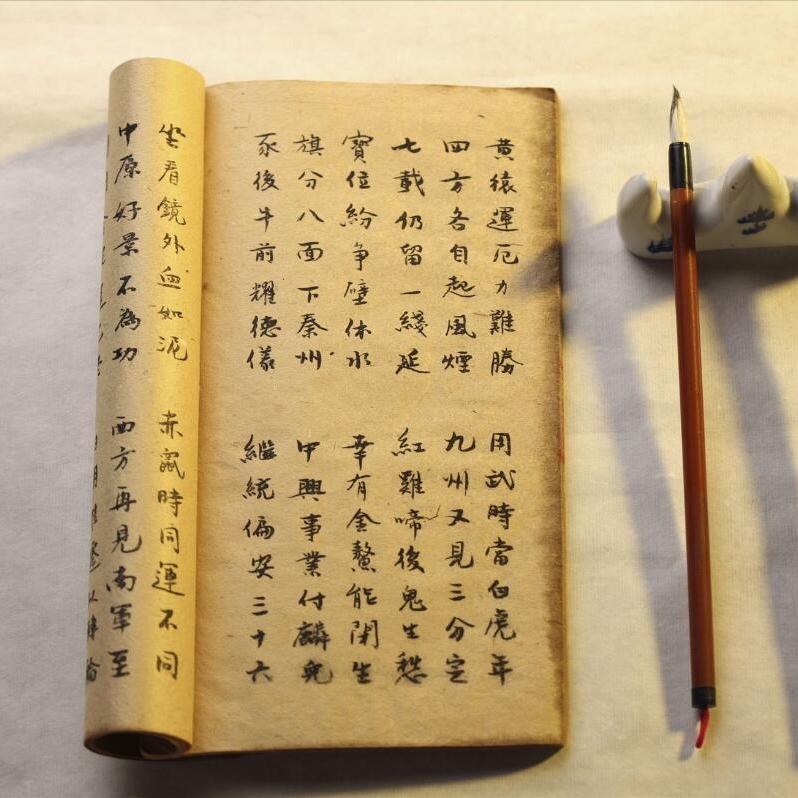 黃猿運厄力難勝 用武時當白虎年
四方各自起風煙 九州又見三分定
七載仍留一綫延 紅雞啼後鬼生愁
寶位紛争壁休水 幸有金鰲能閑生
旗分八面下秦州 中興事業付麟兒
豕後牛前耀德儀 繼統偏安三十六
坐看鏡外血如泥 赤鼠時同運不同
中原好景不為功 西方再見南軍至